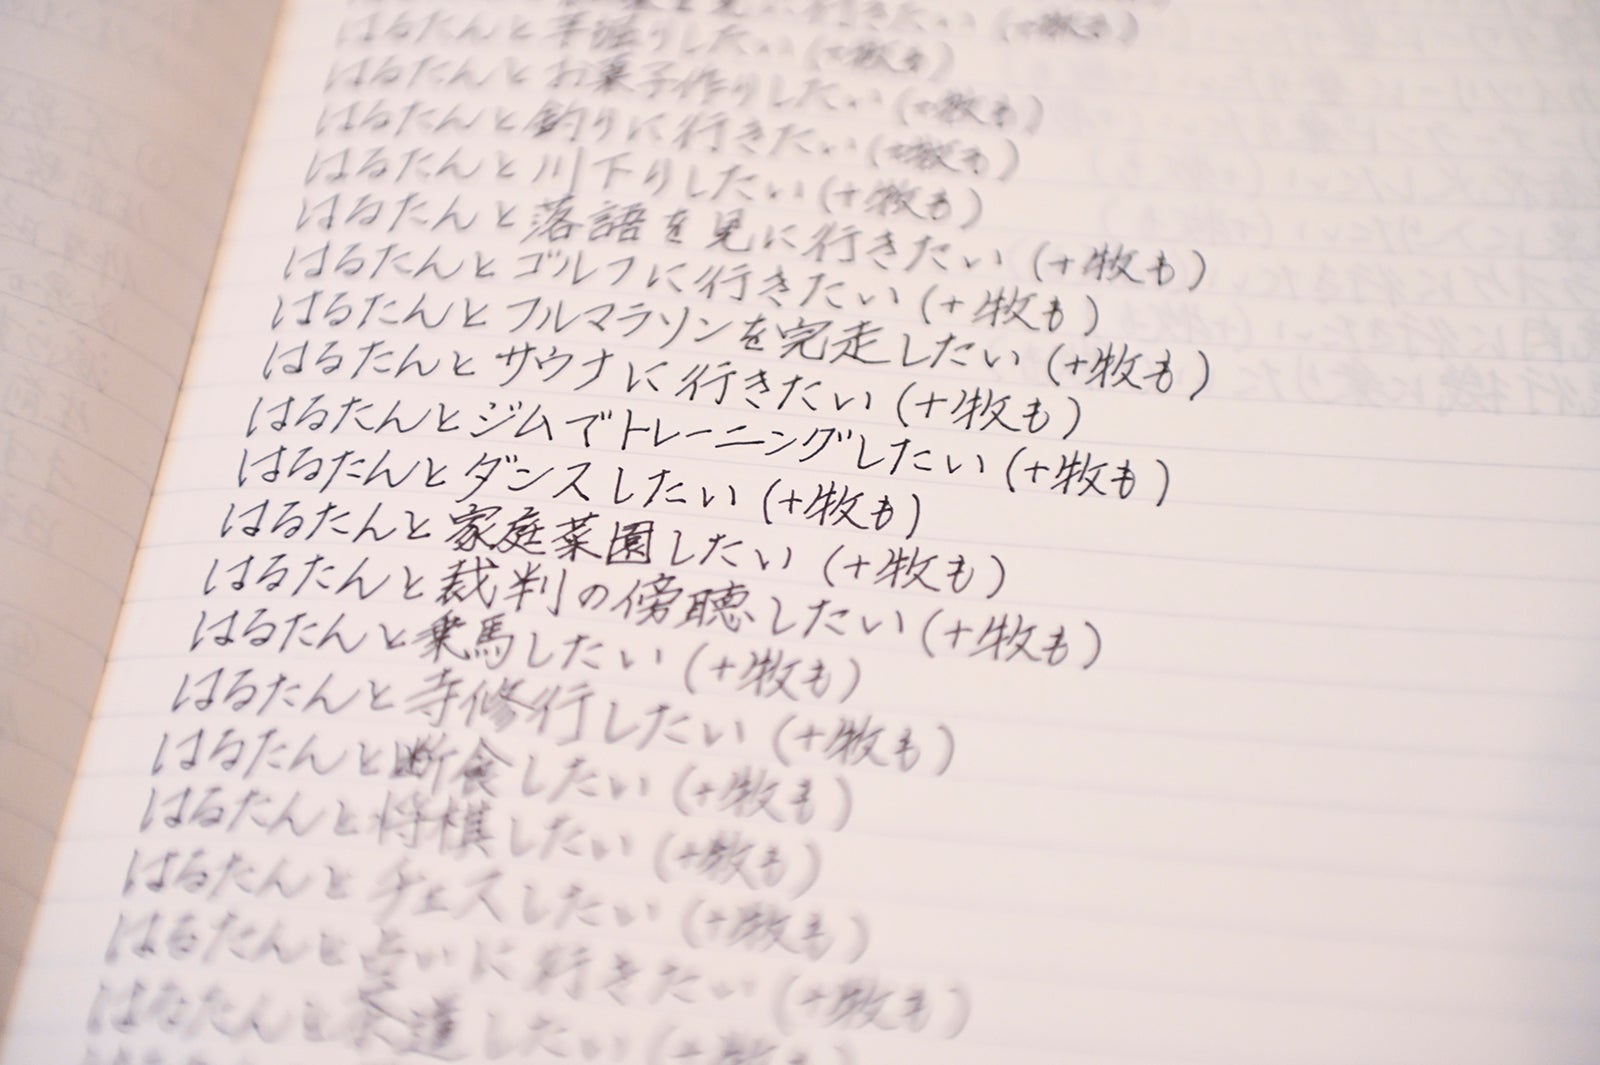 を見に行きたい（+牧も）
はるたんと手堀りしたい（+牧も）
はるたんとお菓子作りしたい（+牧も）
はるたんと釣りに行きたい（+牧も）
はるたんと川下りしたい（+牧も）
はるたんと落語を見に行きたい（+牧も）
はるたんとゴルフに行きたい（+牧も）
はるたんとフルマラソンを完走したい（+牧も）
はるたんとサウナに行きたい（+牧も）
はるたんとジムでトレーニングしたい（+牧も）
はるたんとダンスしたい（+牧も）
はるたんと家庭菜園したい（+牧も）
はるたんと裁判の傍聴したい（+牧も）
はるたんと乗馬したい（+牧も）
はるたんと寺修行したい（+牧も）
はるたんと断食したい（+牧も）
はるたんと将棋したい（+牧も）
はるたんとチェスしたい（+牧も）
はるたんと占いに行きたい（+牧も）
はるたんと茶道したい（+牧も）